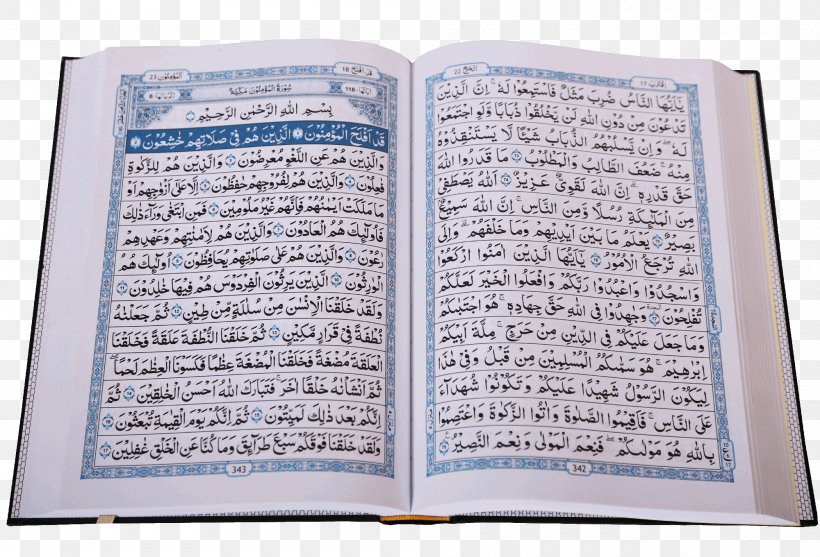 اِقْتَرَبَ 17 اَلْحَجّ 22
يٰۤاَيُّهَا النَّاسُ ضُرِبَ مَثَلٌ فَاسْتَمِعُوْا لَهٗ ؕ اِنَّ الَّذِيْنَ
تَدْعُوْنَ مِنْ دُوْنِ اللّٰهِ لَنْ يَّخْلُقُوْا ذُبَابًا وَّلَوِ اجْتَمَعُوْا
لَهٗ ؕ وَاِنْ يَّسْلُبْهُمُ الذُّبَابُ شَيْـًٔا لَّا يَسْتَنْقِذُوْهُ
مِنْهُ ؕ ضَعُفَ الطَّالِبُ وَالْمَطْلُوْبُ ﴿٧٣﴾ مَا قَدَرُوا اللّٰهَ
حَقَّ قَدْرِهٖ ؕ اِنَّ اللّٰهَ لَقَوِيٌّ عَزِيْزٌ ﴿٧٤﴾ اَللّٰهُ يَصْطَفِيْ
مِنَ الْمَلٰٓئِكَةِ رُسُلًا وَّمِنَ النَّاسِ ؕ اِنَّ اللّٰهَ سَمِيْعٌۢ
بَصِيْرٌ ﴿٧٥﴾ يَعْلَمُ مَا بَيْنَ اَيْدِيْهِمْ وَمَا خَلْفَهُمْ ؕ وَاِلَى
اللّٰهِ تُرْجَعُ الْاُمُوْرُ ﴿٧٦﴾ يٰۤاَيُّهَا الَّذِيْنَ اٰمَنُوا ارْكَعُوْا
وَاسْجُدُوْا وَاعْبُدُوْا رَبَّكُمْ وَافْعَلُوا الْخَيْرَ لَعَلَّكُمْ
تُفْلِحُوْنَ ﴿٧٧﴾ وَجَاهِدُوْا فِي اللّٰهِ حَقَّ جِهَادِهٖ ؕ هُوَ اجْتَبٰىكُمْ
وَمَا جَعَلَ عَلَيْكُمْ فِي الدِّيْنِ مِنْ حَرَجٍ ؕ مِلَّةَ اَبِيْكُمْ
اِبْرٰهِيْمَ ؕ هُوَ سَمّٰىكُمُ الْمُسْلِمِيْنَ مِنْ قَبْلُ وَفِيْ هٰذَا
لِيَكُوْنَ الرَّسُوْلُ شَهِيْدًا عَلَيْكُمْ وَتَكُوْنُوْا شُهَدَآءَ
عَلَى النَّاسِ ۚ فَاَقِيْمُوا الصَّلٰوةَ وَاٰتُوا الزَّكٰوةَ وَاعْتَصِمُوْا
بِاللّٰهِ ؕ هُوَ مَوْلٰىكُمْ ۚ فَنِعْمَ الْمَوْلٰى وَنِعْمَ النَّصِيْرُ ﴿٧٨﴾
342
قَدْ اَفْلَحَ 18 اَلْمُؤْمِنُوْن 23
اٰيَاتُهَا: 118 سُوْرَةُ الْمُؤْمِنُوْنَ مَكِّيَّةٌ رُكُوْعَاتُهَا: 6
بِسْمِ اللّٰهِ الرَّحْمٰنِ الرَّحِيْمِ
قَدْ اَفْلَحَ الْمُؤْمِنُوْنَ ﴿١﴾ الَّذِيْنَ هُمْ فِيْ صَلَاتِهِمْ خٰشِعُوْنَ ﴿٢﴾
وَالَّذِيْنَ هُمْ عَنِ اللَّغْوِ مُعْرِضُوْنَ ﴿٣﴾ وَالَّذِيْنَ هُمْ لِلزَّكٰوةِ
فٰعِلُوْنَ ﴿٤﴾ وَالَّذِيْنَ هُمْ لِفُرُوْجِهِمْ حٰفِظُوْنَ ﴿٥﴾ اِلَّا عَلٰٓى اَزْوَاجِهِمْ اَوْ
مَا مَلَكَتْ اَيْمَانُهُمْ فَاِنَّهُمْ غَيْرُ مَلُوْمِيْنَ ﴿٦﴾ فَمَنِ ابْتَغٰى وَرَآءَ ذٰلِكَ
فَاُولٰٓئِكَ هُمُ الْعَادُوْنَ ﴿٧﴾ وَالَّذِيْنَ هُمْ لِاَمٰنٰتِهِمْ وَعَهْدِهِمْ
رٰعُوْنَ ﴿٨﴾ وَالَّذِيْنَ هُمْ عَلٰى صَلَوٰتِهِمْ يُحَافِظُوْنَ ﴿٩﴾ اُولٰٓئِكَ هُمُ
الْوٰرِثُوْنَ ﴿١٠﴾ الَّذِيْنَ يَرِثُوْنَ الْفِرْدَوْسَ ؕ هُمْ فِيْهَا خٰلِدُوْنَ ﴿١١﴾
وَلَقَدْ خَلَقْنَا الْاِنْسَانَ مِنْ سُلٰلَةٍ مِّنْ طِيْنٍ ﴿١٢﴾ ثُمَّ جَعَلْنٰهُ
نُطْفَةً فِيْ قَرَارٍ مَّكِيْنٍ ﴿١٣﴾ ثُمَّ خَلَقْنَا النُّطْفَةَ عَلَقَةً فَخَلَقْنَا
الْعَلَقَةَ مُضْغَةً فَخَلَقْنَا الْمُضْغَةَ عِظٰمًا فَكَسَوْنَا الْعِظٰمَ لَحْمًا
ثُمَّ اَنْشَاْنٰهُ خَلْقًا اٰخَرَ ؕ فَتَبٰرَكَ اللّٰهُ اَحْسَنُ الْخٰلِقِيْنَ ﴿١٤﴾ ثُمَّ
اِنَّكُمْ بَعْدَ ذٰلِكَ لَمَيِّتُوْنَ ﴿١٥﴾ ثُمَّ اِنَّكُمْ يَوْمَ الْقِيٰمَةِ تُبْعَثُوْنَ ﴿١٦﴾
وَلَقَدْ خَلَقْنَا فَوْقَكُمْ سَبْعَ طَرَآئِقَ ۖ وَمَا كُنَّا عَنِ الْخَلْقِ غٰفِلِيْنَ ﴿١٧﴾
343